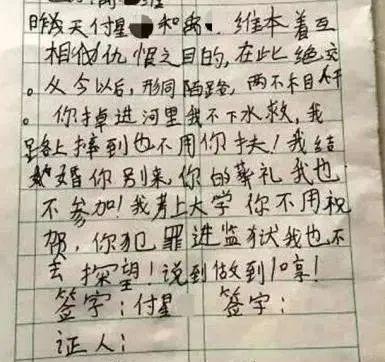 昨天付星 和禹 、维本着互
相仇恨之目的,在此绝交
。从今以后,形同陌路,两不相干
。你掉进河里我不下水救,我
路上摔到也不用你扶!我结
婚你别来,你的葬礼我也
不参加!我考上大学你不用祝
贺,你犯罪进监狱我也不
去探望!说到做到!
签字:付星 签字:
证人: